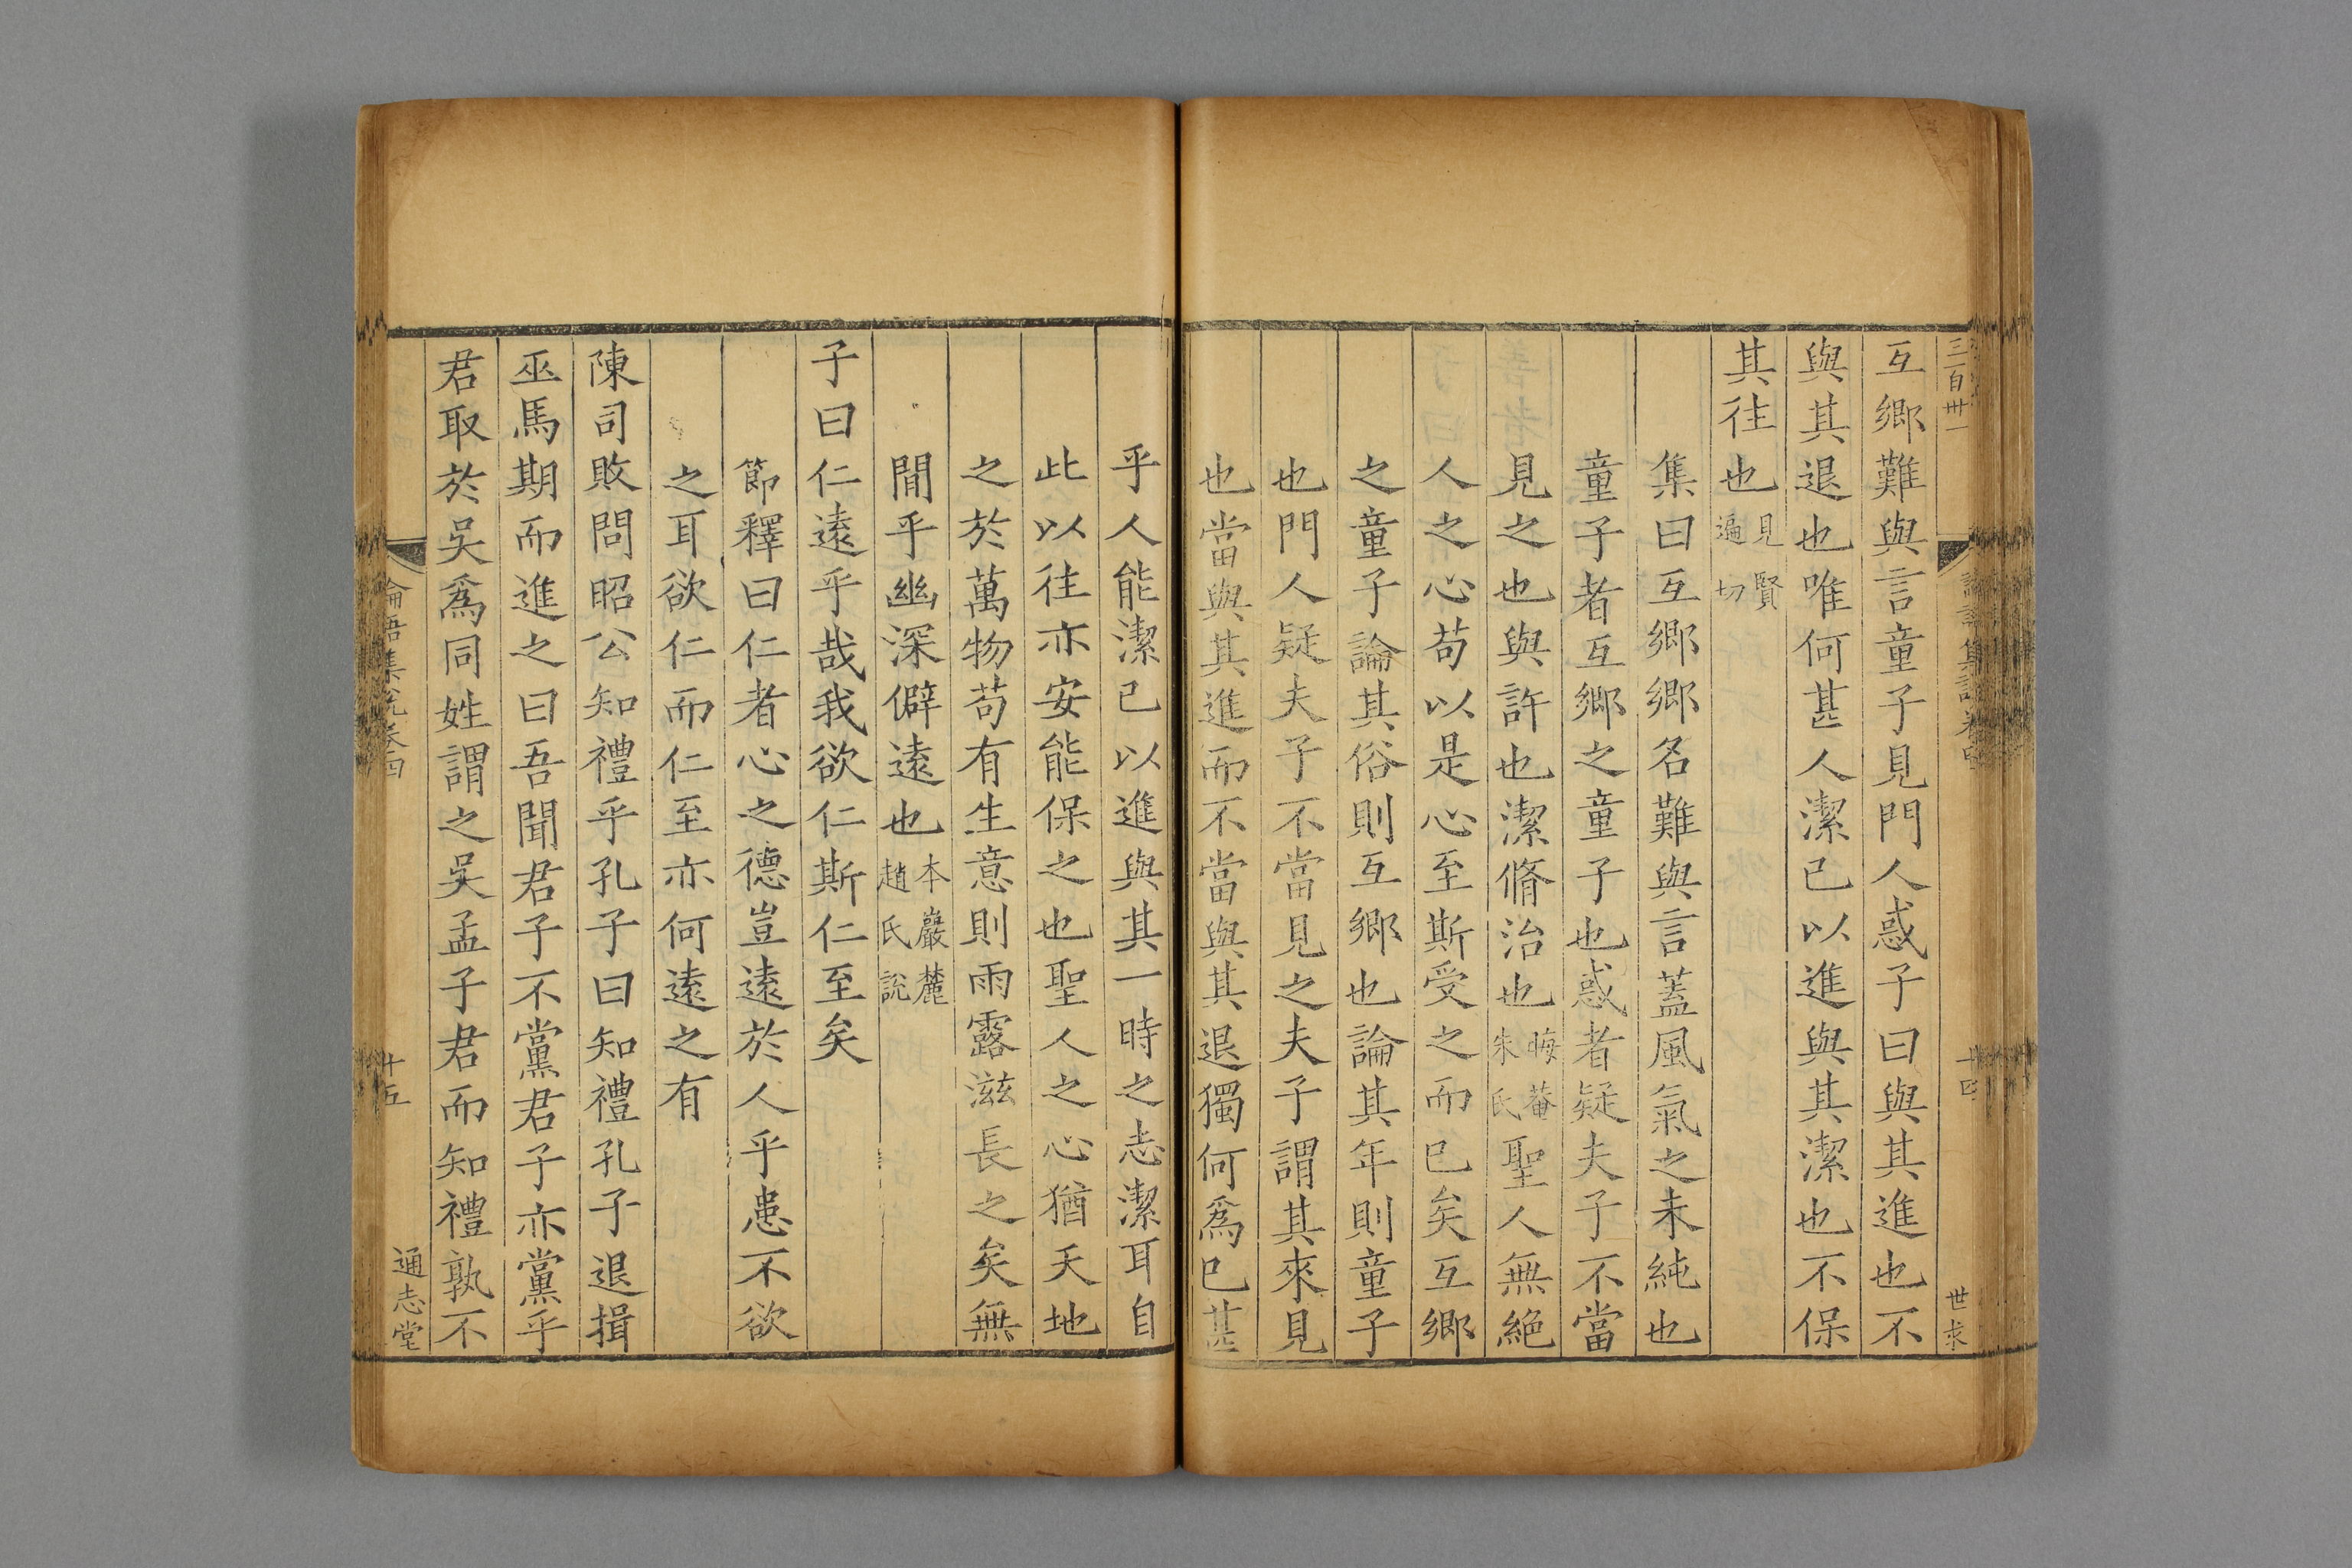 三百卅一
世求
互鄉難與言童子見門人惑子曰與其進也不
與其退也唯何甚人潔己以進與其潔也不保
其往也見賢遍切
集曰互鄉鄉名難與言蓋風氣之未純也
童子者互鄉之童子也惑者疑夫子不當
見之也與許也潔脩治也晦菴朱氏聖人無絶
人之心苟以是心至斯受之而已矣互鄉
之童子論其俗則互鄉也論其年則童子
也門人疑夫子不當見之夫子謂其來見
也當與其進而不當與其退獨何爲已甚
乎人能潔已以進與其一時之志潔耳自
此以往亦安能保之也聖人之心猶天地
之於萬物苟有生意則雨露滋長之矣無
間乎幽深僻遠也本巖麓趙氏說
子曰仁遠乎哉我欲仁斯仁至矣
節釋曰仁者心之德豈遠於人乎患不欲
之耳欲仁而仁至亦何遠之有
陳司敗問昭公知禮乎孔子曰知禮孔子退揖
巫馬期而進之曰吾聞君子不黨君子亦黨乎
君取於吳爲同姓謂之吳孟子君而知禮孰不
論語集說卷四
十五
通志堂